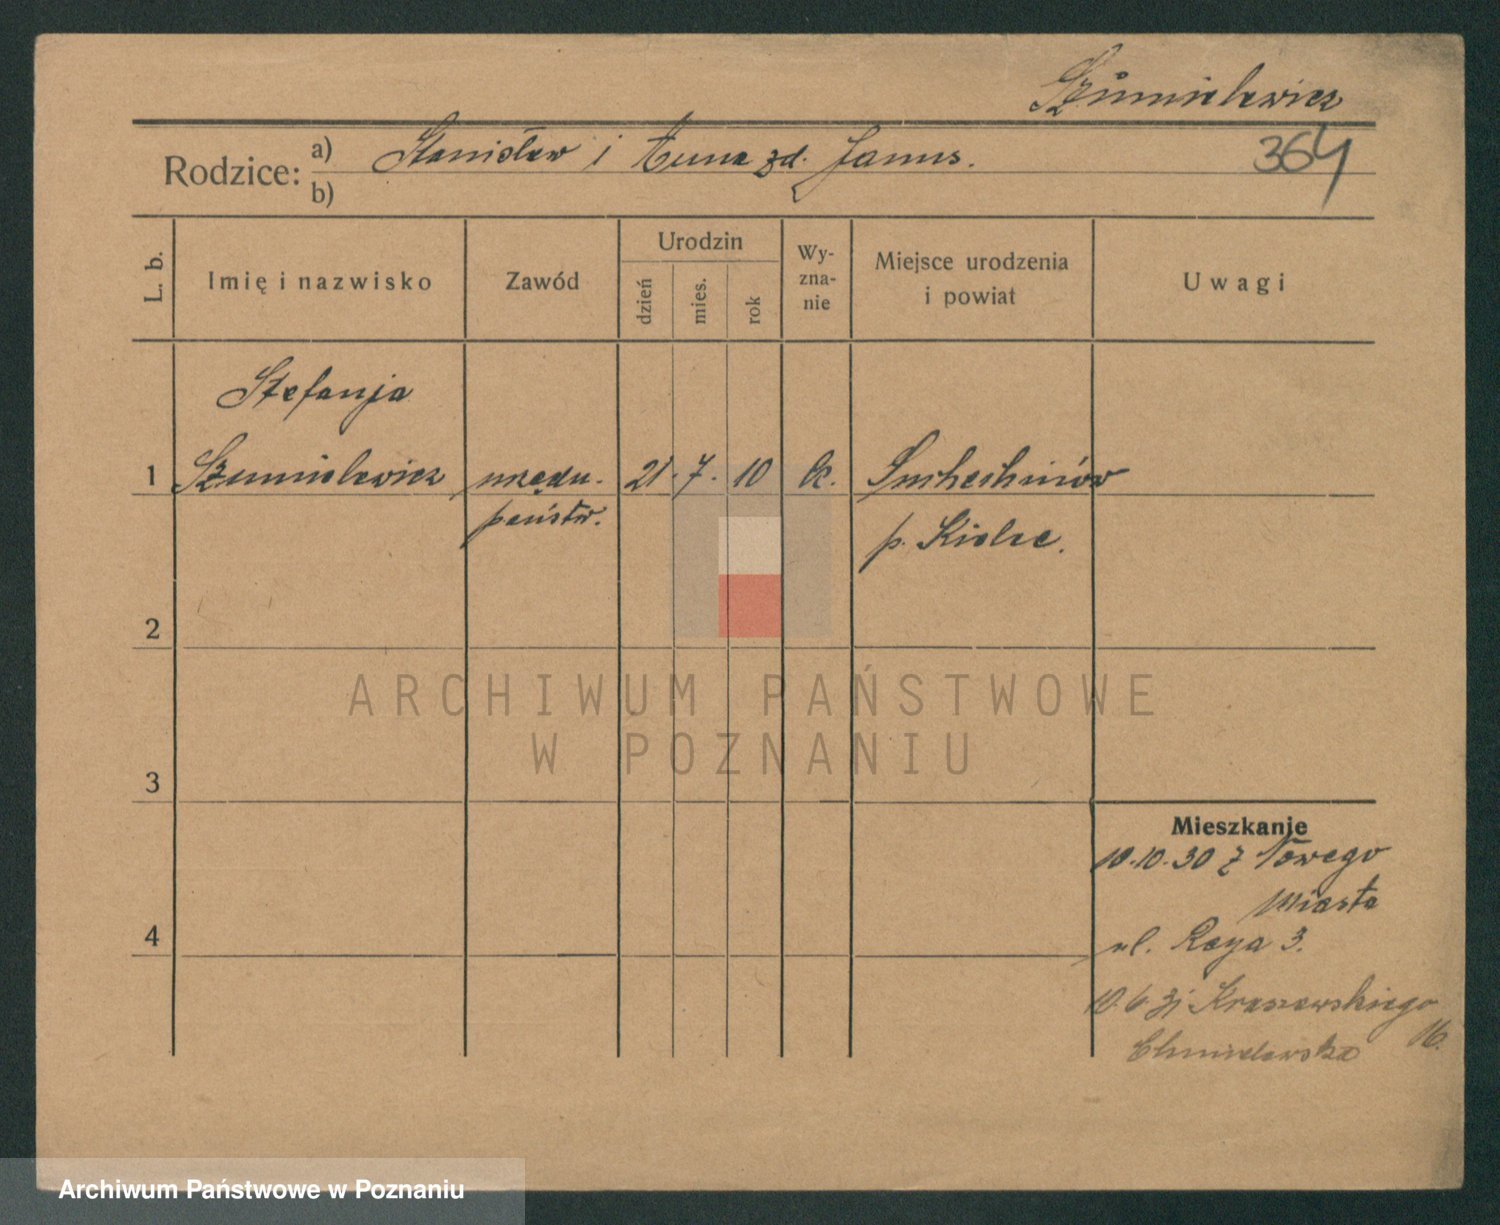 Szumielewicz
Rodzice: a) Stanisław i Anna zd. Janus.
364
b)
L. b.
Imię i nazwisko
Zawód
Urodzin
dzień
mies.
rok
Wy-
zna-
nie
Miejsce urodzenia
i powiat
Uwagi
Stefanja
1 Szumielewicz urzędn. 21. 7. 10 k.
państw.
p. Kielce.
2
ARCHIWUM PAŃSTWOWE
W POZNANIU
3
Mieszkanie
10.10.30 z Nowego
Miasta
4
ul. Reya 3.
10.6.31 Kraszewskiego
16.
Chmielewska
Archiwum Państwowe w Poznaniu